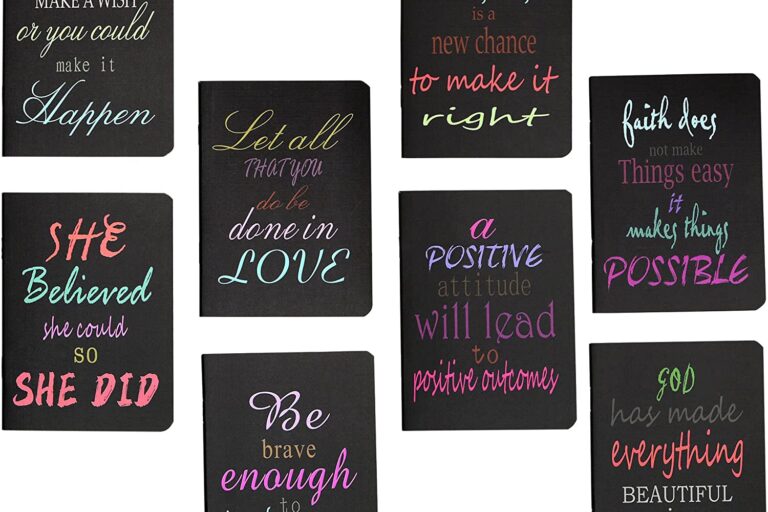 MAKE A WISH
or you could
make it
Happen
SHE
Believed
she could
so
SHE DID
Let all
THAT YOU
do be
done in
LOVE
Be
brave
enough
to
is a
new chance
to make it
right
a
POSITIVE
attitude
will lead
to
positive outcomes
faith does
not make
Things easy
it
makes things
POSSIBLE
GOD
has made
everything
BEAUTIFUL